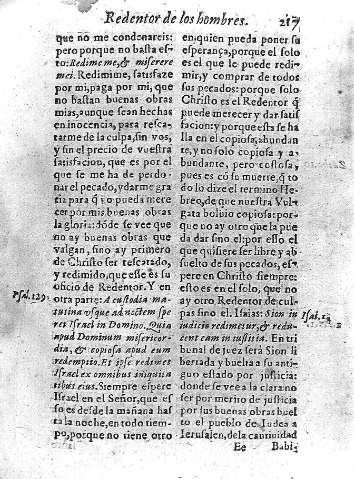 Redentor de los hombres. 217
que no me condenareis:
pero porque no basta es-
to: Redime me, & miserere
mei. Redimime, satisfaze
por mi, paga por mi, que
no bastan buenas obras
mias, aunque sean hechas
en inocencia, para resca-
tarme de la culpa, sin vos,
y sin el precio de vuestra
satisfacion, que es por el
que se me ha de perdo-
nar el pecado, y darme gra
tia para q̃ yo pueda mere
cer por mis buenas obras
la gloria: dõde se vee que
no ay buenas obras que
valgan, sino ay primero
de Christo ser rescatado,
y redimido, que esse es su
oficio de Redentor. Y en
Psal. 129. otra parte: A custodia ma-
tutina vsque ad noctem spe
ret Israel in Domino. Quia
apud Dominum misericor-
dia, & copiosa apud eum
redemptio. Et ipse redimet
Israel ex omnibus iniquita
tibus eius. Siempre espere
Israel en el Señor, que es-
so es desde la mañana has
ta la noche, en todo tiem-
po, porque no tiene otro
en quien pueda poner su
esperança, porque el solo
es el que le puede redi-
mir, y comprar de todos
sus pecados: porque solo
Christo es el Redentor q̃
puede merecer y dar satis
facion: y porque esta se ha
lla en el copiosa, abundan
te, y no solo copiosa y a-
bundante, pero costosa,
pues es cõ su muerte, q̃ to
do lo dize el termino He-
breo, de que nuestra Vul-
gata boluio copiosa: por-
que no ay otro que la pue
da dar sino el: por esso el
que quisiere ser libre y ab
suelto de sus pecados, es-
pere en Christo siempre:
esto es en el solo, que no
ay otro Redentor de cul-
pas sino el. Isaias: Sion in
iudicio redimetur, & redu-
cent eam in iustitia. En tri
bunal de juez será Sion li
bertada y buelta a su anti-
guo estado por justicia:
donde se vee a la clara no
ser por merito de justicia
por sus buenas obras buel
to el pueblo de Iudea a
Ierusalen, de la cautiuidad
Isai.
Ee Babi-